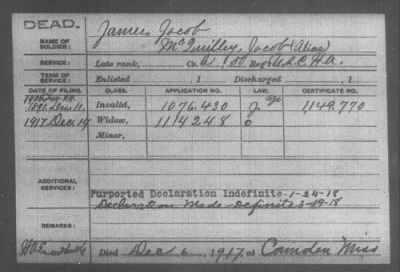 DEAD.
NAME OF SOLDIER: James Jacob
McQuilley, Jacob (Alias)
SERVICE: Late rank, Co. A, Reg't U.S.C.H.A.
TERM OF SERVICE: Enlisted , 1 Discharged , 1
DATE OF FILING. CLASS. APPLICATION NO. LAW. CERTIFICATE NO.
Invalid, 1076.430 1,149.770
1917 Dec 14 Widow, 1114248 o
Minor,
ADDITIONAL SERVICES:
Purported Declaration Indefinite-1-24-18
Declaration Made Definite 3-19-18
REMARKS:
Died Dec 6, 1917, at Camden Miss